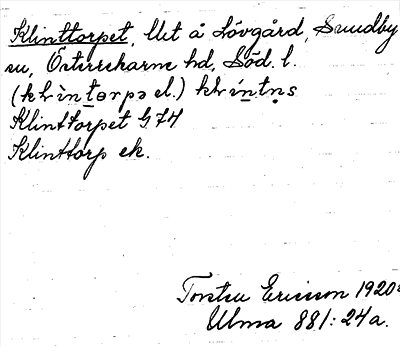 Klinttorpet, Utt å Lövgård, Sundby
sn, Österrekarne hd, Söd. l.
(klìntorpə el.)
Klinttorpet G74
Klinttorp ek.
Torsten Ericson 1920
Ulma 881: 24a.